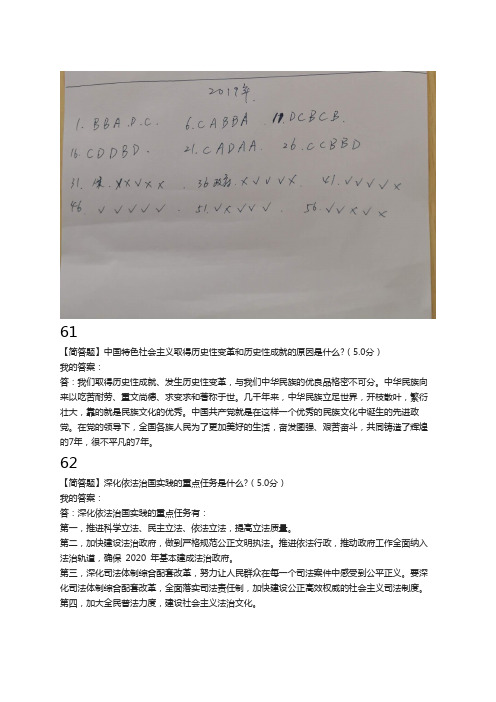 2019年.
1. BBA.D.C. 6. CABBA. 11. DCBCB.
16. CDDBD. 21. CADAA. 26. CCBBD
31. XX√XX. 36 X√√√X. 41. √√√√X
46. √√√√√. 51. √X√√√. 56. √√X√X
61
【简答题】中国特色社会主义取得历史性变革和历史性成就的原因是什么?(5.0分)
我的答案:
答:我们取得历史性成就、发生历史性变革,与我们中华民族的优良品格密不可分。中华民族向
来以吃苦耐劳、重文尚德、求变求和著称于世。几千年来,中华民族立足世界,开枝散叶,繁衍
壮大,靠的就是民族文化的优秀。中国共产党就是在这样一个优秀的民族文化中诞生的先进政
党。在党的领导下,全国各族人民为了更加美好的生活,奋发图强、艰苦奋斗,共同铸造了辉煌
的7年,很不平凡的7年。
62
【简答题】深化依法治国实践的重点任务是什么?(5.0分)
我的答案:
答:深化依法治国实践的重点任务有:
第一,推进科学立法、民主立法、依法立法,提高立法质量。
第二,加快建设法治政府,做到严格规范公正文明执法。推进依法行政,推动政府工作全面纳入
法治轨道,确保 2020 年基本建成法治政府。
第三,深化司法体制综合配套改革,努力让人民群众在每一个司法案件中感受到公平正义。要深
化司法体制综合配套改革,全面落实司法责任制,加快建设公正高效权威的社会主义司法制度。
第四,加大全民普法力度,建设社会主义法治文化。